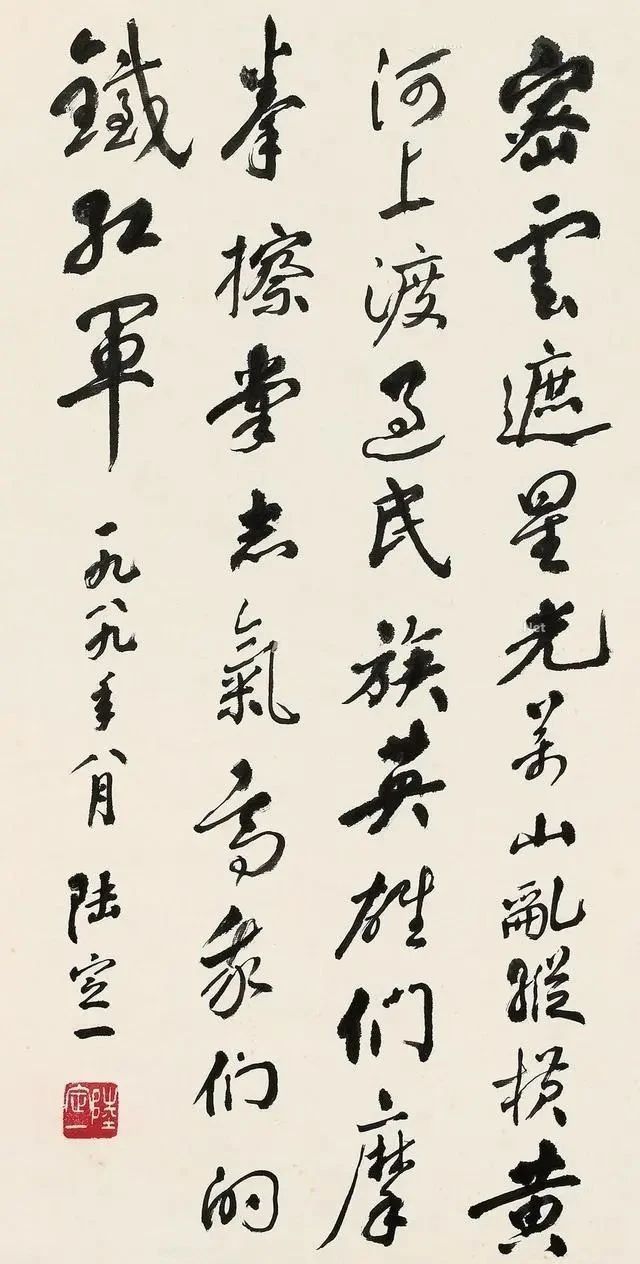 密雲遮星光萬山亂縱横黄
河上渡過民族英雄們摩
拳擦掌志氣高我們的
鐵紅軍
一九八九年八月 陸定一
陸定一
Net